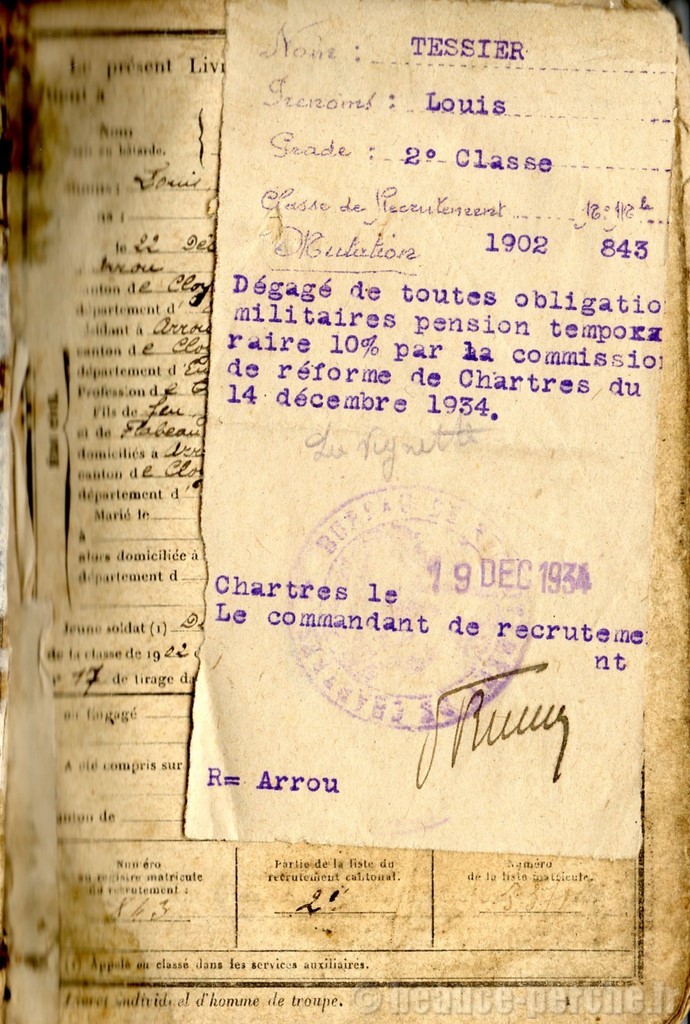 Nom : TESSIER
Prénoms : Louis
Grade : 2° Classe
Classe de Recrutement N: Mle
Mutation 1902 843
Dégagé de toutes obligatio
militaires pension tempoxx
raire 10% par la commissio
de réforme de Chartres du
14 décembre 1934.
La vignette
BUREAU DE
Chartres le 19 DEC 1934
Le commandant de recruteme
nt
R= Arrou
Le présent Livr
Nom
Louis
le 22 Déc
Arrou
canton de Cloy
département d'
résidant à Arrou
canton de Cloy
département d'Eu
Profession de
Fils de feu
et de Flabeau
domiciliés à Arr
canton de Cloy
département d'
Marié le
à
alors domiciliée à
département d
Jeune soldat (1)
de la classe de 1902
n° 17 de tirage da
ou Engagé
A été compris sur
canton de
Numéro
au registre matricule
du recrutement :
843
Partie de la liste du
recrutement cantonal.
2e
Numéro
de la liste matricule.
(1) Appelé ou classé dans les services auxiliaires.
Livret individuel d'homme de troupe.
© beauce-perche.fr